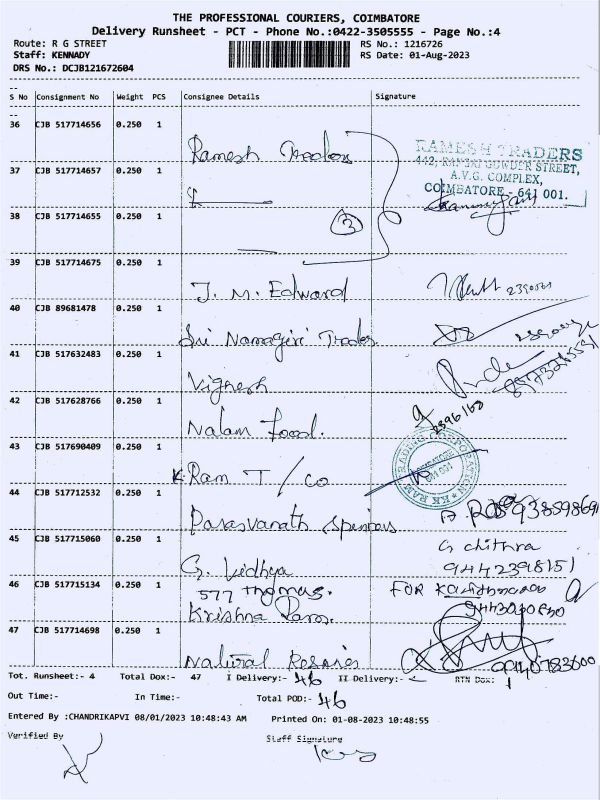 THE PROFESSIONAL COURIERS, COIMBATORE
Delivery Runsheet - PCT - Phone No.:0422-3505555 - Page No.:4
Route: R G STREET RS No.: 1216726
Staff: KENNADY RS Date: 01-Aug-2023
DRS No.: DCJB121672604
S No Consignment No Weight PCS Consignee Details Signature
36 CJB 517714656 0.250 1
Ramesh Traders
RAMESH TRADERS
STREET,
37 CJB 517714657 0.250 1
A.V.G. COMPLEX,
COIMBATORE - 641 001.
38 CJB 517714655 0.250 1
3
39 CJB 517714675 0.250 1
J. M. Edward
40 CJB 89681478 0.250 1
Sri Namagiri Traders
41 CJB 517632483 0.250 1
Vignesh
42 CJB 517628766 0.250 1
Nalam Food.
43 CJB 517690409 0.250 1
Ram T / co
KK RAM TRADING CORPORATION
44 CJB 517712532 0.250 1
45 CJB 517715060 0.250 1
G. Vidhya
G chithra
9442398151
46 CJB 517715134 0.250 1
577 Thomas.
Krishna Ram.
FOR
47 CJB 517714698 0.250 1
Natural
Tot. Runsheet:- 4 Total Dox:- 47 I Delivery:- 46 II Delivery:- RTN Dox: 1
Out Time:- In Time:- Total POD:- 46
Entered By :CHANDRIKAPVI 08/01/2023 10:48:43 AM Printed On: 01-08-2023 10:48:55
Verified By Staff Signature